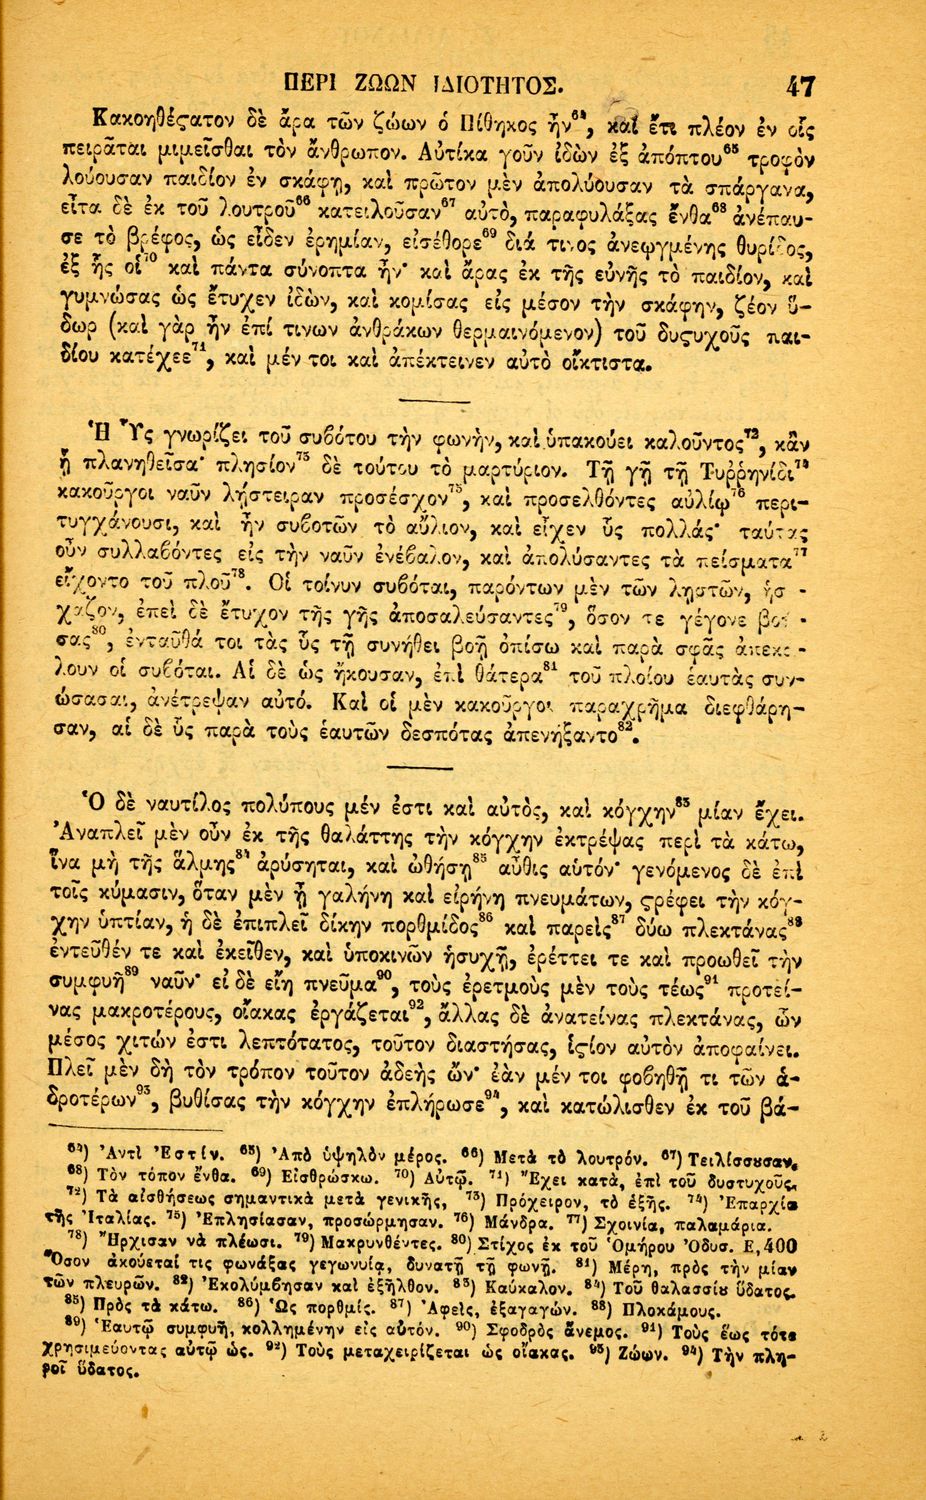 ΠΕΡΙ ΖΩΩΝ ΙΔΙΟΤΗΤΟΣ. 47
Κακοηθέςατον δὲ ἄρα τῶν ζώων ὁ Πίθηκος ἦν⁶⁴, καὶ ἔτι πλέον ἐν οἷς
πειρᾶται μιμεῖσθαι τὸν ἄνθρωπον. Αὐτίκα γοῦν ἰδὼν ἐξ ἀπόπτου⁶⁵ τροφὸν
λούουσαν παιδίον ἐν σκάφῃ, καὶ πρῶτον μὲν ἀπολύουσαν τὰ σπάργανα,
εἶτα δὲ ἐκ τοῦ λουτροῦ⁶⁶ κατειλοῦσαν⁶⁷ αὐτὸ, παραφυλάξας ἔνθα⁶⁸ ἀνέπαυ-
σε τὸ βρέφος, ὡς εἶδεν ἐρημίαν, εἰσέθορε⁶⁹ διά τινος ἀνεῳγμένης θυρίδος,
ἐξ ἧς οἱ⁷⁰ καὶ πάντα σύνοπτα ἦν· καὶ ἄρας ἐκ τῆς εὐνῆς τὸ παιδίον, καὶ
γυμνώσας ὡς ἔτυχεν ἰδὼν, καὶ κομίσας εἰς μέσον τὴν σκάφην, ζέον ὕ-
δωρ (καὶ γὰρ ἦν ἐπί τινων ἀνθράκων θερμαινόμενον) τοῦ δυςυχοῦς παι-
δίου κατέχεε⁷¹, καὶ μέν τοι καὶ ἀπέκτεινεν αὐτὸ οἴκτιστα.
Ἡ Ὗς γνωρίζει τοῦ συβότου τὴν φωνὴν, καὶ ὑπακούει καλοῦντος⁷², κἂν
ᾖ πλανηθεῖσα· πλησίον⁷³ δὲ τούτου τὸ μαρτύριον. Τῇ γῇ τῇ Τυῤῥηνίδι⁷⁴
κακοῦργοι ναῦν λῄστειραν προσέσχον⁷⁵, καὶ προσελθόντες αὐλίῳ⁷⁶ περι-
τυγχάνουσι, καὶ ἦν συβοτῶν τὸ αὔλιον, καὶ εἶχεν ὗς πολλάς· ταύτας
οὖν συλλαβόντες εἰς τὴν ναῦν ἐνέβαλον, καὶ ἀπολύσαντες τὰ πείσματα⁷⁷
εἴχοντο τοῦ πλοῦ⁷⁸. Οἱ τοίνυν συβόται, παρόντων μὲν τῶν λῃστῶν, ἡσ-
χαζον, ἐπεὶ δὲ ἔτυχον τῆς γῆς ἀποσαλεύσαντες⁷⁹, ὅσον τε γέγονε βοή-
σας⁸⁰, ἐνταῦθά τοι τὰς ὗς τῇ συνήθει βοῇ ὀπίσω καὶ παρὰ σφᾶς ἀπεκά-
λουν οἱ συβόται. Αἱ δὲ ὡς ἤκουσαν, ἐπὶ θάτερα⁸¹ τοῦ πλοίου ἑαυτὰς συν-
ώσασαι, ἀνέτρεψαν αὐτό. Καὶ οἱ μὲν κακοῦργοι παραχρῆμα διεφθάρη-
σαν, αἱ δὲ ὗς παρὰ τοὺς ἑαυτῶν δεσπότας ἀπενήξαντο⁸².
Ὁ δὲ ναυτίλος πολύπους μέν ἐστι καὶ αὐτὸς, καὶ κόγχην⁸³ μίαν ἔχει.
Ἀναπλεῖ μὲν οὖν ἐκ τῆς θαλάττης τὴν κόγχην ἐκτρέψας περὶ τὰ κάτω,
ἵνα μὴ τῆς ἅλμης⁸⁴ ἀρύσηται, καὶ ὠθήσῃ⁸⁵ αὖθις αὐτόν· γενόμενος δὲ ἐπὶ
τοῖς κύμασιν, ὅταν μὲν ᾖ γαλήνη καὶ εἰρήνη πνευμάτων, ςρέφει τὴν κόγ-
χην ὑπτίαν, ἡ δὲ ἐπιπλεῖ δίκην πορθμίδος⁸⁶ καὶ παρεὶς⁸⁷ δύω πλεκτάνας⁸⁸
ἐντεῦθέν τε καὶ ἐκεῖθεν, καὶ ὑποκινῶν ἡσυχῇ, ἐρέττει τε καὶ προωθεῖ τὴν
συμφυῆ⁸⁹ ναῦν· εἰ δὲ εἴη πνεῦμα⁹⁰, τοὺς ἐρετμοὺς μὲν τοὺς τέως⁹¹ προτεί-
νας μακροτέρους, οἴακας ἐργάζεται⁹², ἄλλας δὲ ἀνατείνας πλεκτάνας, ὧν
μέσος χιτών ἐστι λεπτότατος, τοῦτον διαστήσας, ἱςίον αὐτὸν ἀποφαίνει.
Πλεῖ μὲν δὴ τὸν τρόπον τοῦτον ἀδεὴς ὤν· ἐὰν μέν τοι φοβηθῇ τι τῶν ἁ-
δροτέρων⁹³, βυθίσας τὴν κόγχην ἐπλήρωσε⁹⁴, καὶ κατώλισθεν ἐκ τοῦ βά-
⁶⁴) Ἀντὶ Ἐστίν. ⁶⁵) Ἀπὸ ὑψηλὸν μέρος. ⁶⁶) Μετὰ τὸ λουτρόν. ⁶⁷) Τειλίσσȣσαν.
⁶⁸) Τὸν τόπον ἔνθα. ⁶⁹) Εἰσθρώσκω. ⁷⁰) Αὐτῷ. ⁷¹) Ἔχει κατὰ, ἐπὶ τοῦ δυστυχοῦς.
⁷²) Τὰ αἰσθήσεως σημαντικὰ μετὰ γενικῆς, ⁷³) Πρόχειρον, τὸ ἑξῆς. ⁷⁴) Ἐπαρχία
τῆς Ἰταλίας. ⁷⁵) Ἐπλησίασαν, προσώρμησαν. ⁷⁶) Μάνδρα. ⁷⁷) Σχοινία, παλαμάρια.
⁷⁸) Ἤρχισαν νὰ πλέωσι. ⁷⁹) Μακρυνθέντες. ⁸⁰) Στίχος ἐκ τοῦ Ὁμήρου Ὀδυσ. Ε, 400
Ὅσον ἀκούεταί τις φωνάξας γεγωνυίᾳ, δυνατῇ τῇ φωνῇ. ⁸¹) Μέρη, πρὸς τὴν μίαν
τῶν πλευρῶν. ⁸²) Ἐκολύμβησαν καὶ ἐξῆλθον. ⁸³) Καύκαλον. ⁸⁴) Τοῦ θαλασσίȣ ὕδατος.
⁸⁵) Πρὸς τὰ κάτω. ⁸⁶) Ὡς πορθμίς. ⁸⁷) Ἀφεὶς, ἐξαγαγών. ⁸⁸) Πλοκάμους.
⁸⁹) Ἑαυτῷ συμφυῆ, κολλημένην εἰς αὐτόν. ⁹⁰) Σφοδρὸς ἄνεμος. ⁹¹) Τοὺς ἕως τότε
χρησιμεύοντας αὐτῷ ὡς. ⁹²) Τοὺς μεταχειρίζεται ὡς οἴακας. ⁹³) Ζώων. ⁹⁴) Τὴν πλη-
ροῖ ὕδατος.